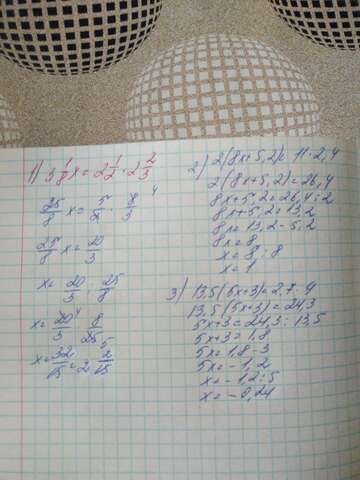 1) 3 1/8 x = 2 1/2 · 2 2/3
25/8 x = 5/2 · 8/3
25/8 x = 20/3
x = 20/3 : 25/8
x = 20/3 · 8/25
x = 32/15 = 2 2/15
2) 2(8x+5,2) = 11·2,4
2(8x+5,2) = 26,4
8x+5,2 = 26,4:2
8x+5,2 = 13,2
8x = 13,2 - 5,2
8x = 8
x = 8 : 8
x = 1
3) 13,5(5x+3) = 2,7·9
13,5(5x+3) = 24,3
5x+3 = 24,3 : 13,5
5x+3 = 1,8
5x = 1,8 - 3
5x = -1,2
x = -1,2 : 5
x = -0,24